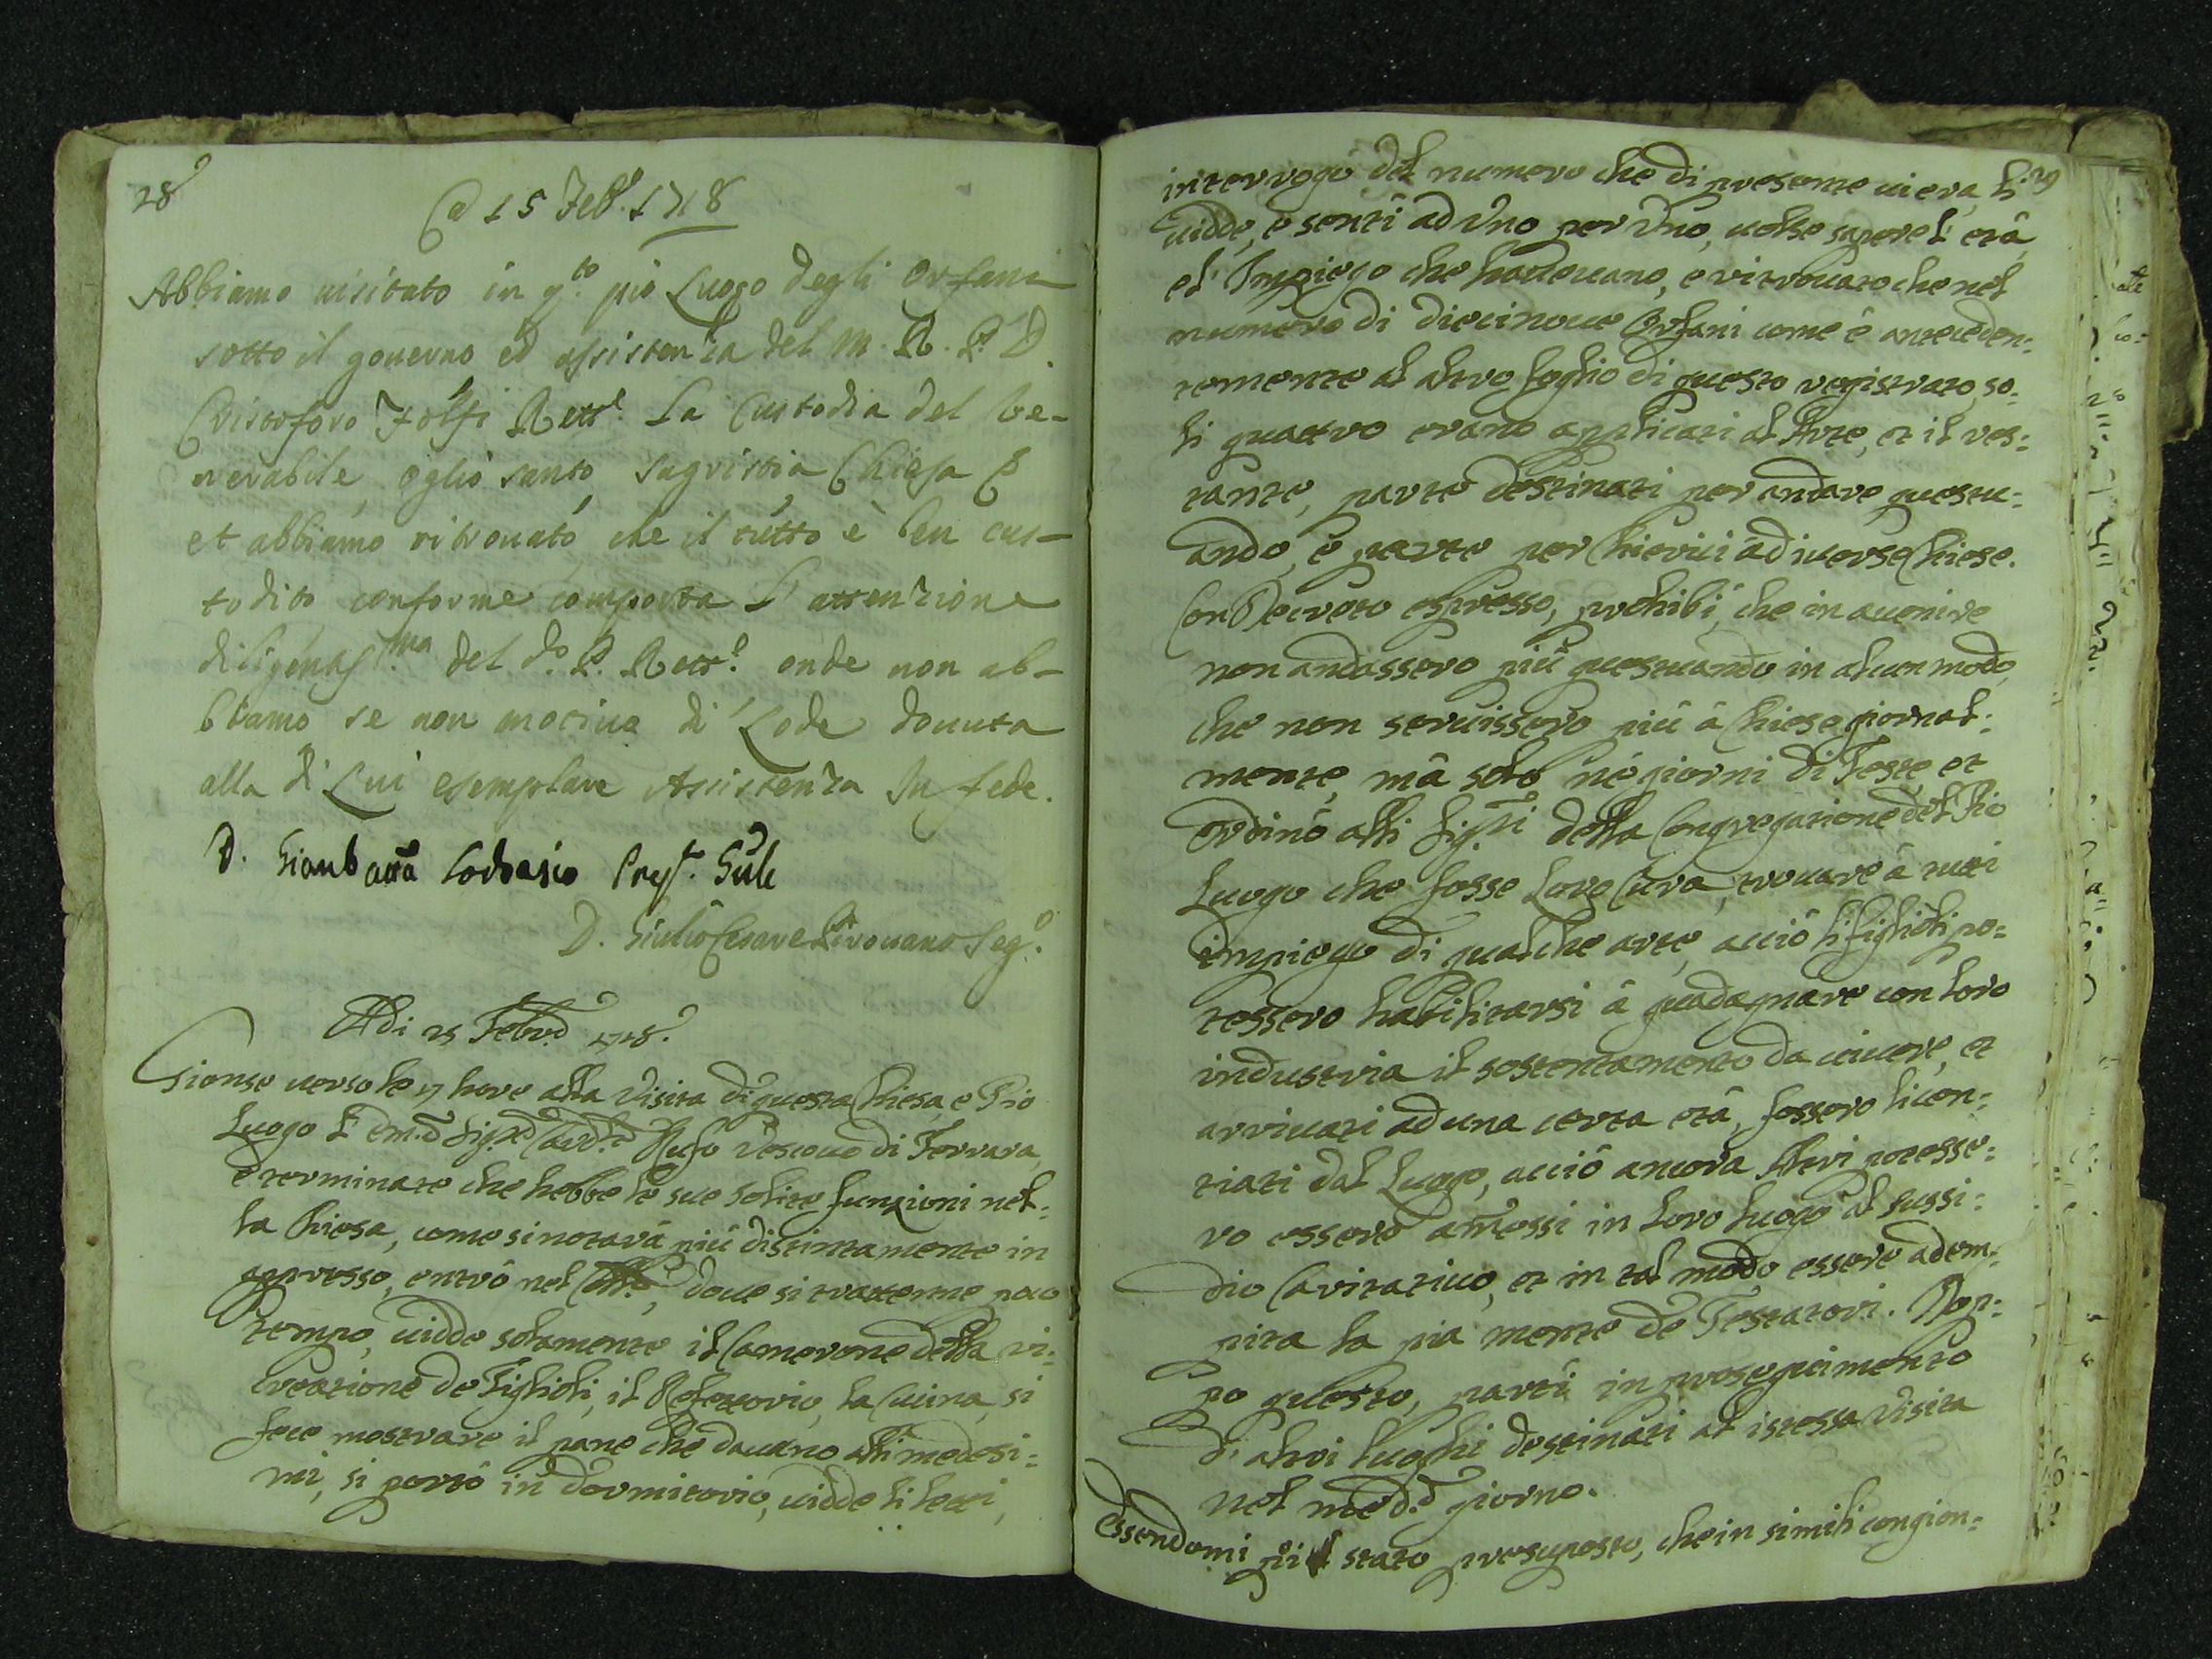 28
A 15 Feb.o 1718
Abbiamo uisitato in q.to pio Luogo degli Orfani
sotto il gouerno ed assistenza del M. R. P. D.
Cristoforo Folfi Rett.e La Custodia del Ve-
nerabile, oglio santo, sagristia Chiesa &
et abbiamo ritrouato, che il tutto è ben cus-
todito, conforme comporta l'attenzione
diligentiss.ma del d.o P. Rett.e onde non ab-
biamo se non motiuo di Lode douuta
alla di Lui esemplare Assistenza In fede.
D. Gianbatta Lodrasio Prep.
D. Giulio Cesare Pirouano Seg.o
Adi 25 Febr.o 1718.
Gionse uerso le 17 hore alla Visita di questa Chiesa e Pio
Luogo l'Em.o Sig.re Card.le Rufo Vescouo di Ferrara,
e terminate che hebbe le sue solite funzioni nel-
la Chiesa, come si notarà più distintamente in
appresso, entrò nel doue si trattenne poco
tempo, uidde solamente il Camerone della ri-
creatione de Figlioli, il Refettorio, la Cucina, si
fece mostrare il pane che dauano alli medesi-
mi, si portò in Dormitorio, uidde li letti,
29
interrogò del numero che di presente ui era, li
uidde, e sentì ad Vno per Vno, uolse sapere l'età
el'Impiego che haueuano, e ritrouato che nel
numero di diecinoue Orfani come è anteceden-
temente al altro foglio di questo registrato, so-
li quattro erano applicati al Arte, et il res-
tante, parte destinati per andare questu-
ando, e parte per Chierici à diuerse Chiese.
Con Decreto espresso, prohibì, che in auenire
non andassero più questuando in alcun modo,
che non seruissero più à Chiese giornal-
mente, mà solo nè giorni di Feste, et
ordinò alli Sig.ri della Congregatione del Pio
Luogo che fosse Loro Cura, trouare à tutti
impiego di qualche arte, acciò li figlioli po-
tessero habilitarsi à guadagnare con loro
industria il sostentamento da uiuere, et
arriuati ad una certa età, fossero licen-
tiati dal Luogo, acciò ancora Altri potesse-
ro essere amessi in loro luogo al sussi-
dio Caritatiuo, et in tal modo essere adem-
pita la pia mente de Testatori. Dop-
po questo, partì in proseguimento
di altri luoghi destinati al istessa Visita
nel med.o giorno.
Essendomi più stato presuposto, che in simili congion-